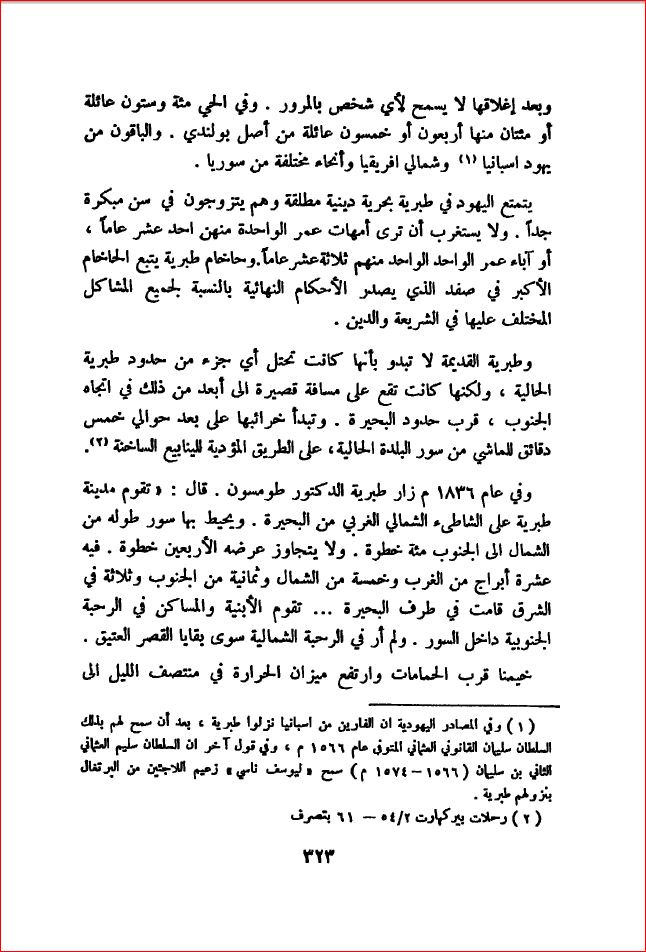 وبعد إغلاقها لا يسمح لأي شخص بالمرور . وفي الحي مئة وستون عائلة
أو مئتان منها أربعون أو خمسون عائلة من أصل بولندي . والباقون من
يهود اسبانيا (١) وشمالي افريقيا وأنحاء مختلفة من سوريا .
يتمتع اليهود في طبرية بحرية دينية مطلقة وهم يتزوجون في سن مبكرة
جداً . ولا يستغرب أن ترى أمهات عمر الواحدة منهن احد عشر عاماً ،
أو آباء عمر الواحد الواحد منهم ثلاثة عشر عاماً. وحاخام طبرية يتبع الحاخام
الأكبر في صفد الذي يصدر الأحكام النهائية بالنسبة لجميع المشاكل
المختلف عليها في الشريعة والدين .
وطبرية القديمة لا تبدو بأنها كانت تحتل أي جزء من حدود طبرية
الحالية ، ولكنها كانت تقع على مسافة قصيرة الى أبعد من ذلك في اتجاه
الجنوب ، قرب حدود البحيرة . وتبدأ خرائبها على بعد حوالي خمس
دقائق للماشي من سور البلدة الحالية ، على الطريق المؤدية للينابيع الساخنة (٢).
وفي عام ١٨٣٦ م زار طبرية الدكتور طومسون . قال : « تقوم مدينة
طبرية على الشاطىء الشمالي الغربي من البحيرة . ويحيط بها سور طوله من
الشمال الى الجنوب مئة خطوة . ولا يتجاوز عرضه الأربعين خطوة . فيه
عشرة أبراج من الغرب وخمسة من الشمال وثمانية من الجنوب وثلاثة في
الشرق قامت في طرف البحيرة ... تقوم الأبنية والمساكن في الرحبة
الجنوبية داخل السور . ولم أر في الرحبة الشمالية سوى بقايا القصر العتيق .
خيمنا قرب الحمامات وارتفع ميزان الحرارة في منتصف الليل الى
(١) وفي المصادر اليهودية ان الفارين من اسبانيا نزلوا طبرية ، بعد أن سمح لهم بذلك
السلطان سليمان القانوني العثماني المتوفى عام ١٥٦٦ م ، وفي قول آخر ان السلطان سليم العثماني
الثاني بن سليمان (١٥٦٦ – ١٥٧٤ م) سمح « ليوسف ناسي » زعيم اللاجئين من البرتغال
بنزولهم طبرية .
(٢) رحلات بيركهارت ٥٤/٢ – ٦١ بتصرف
٣٢٣